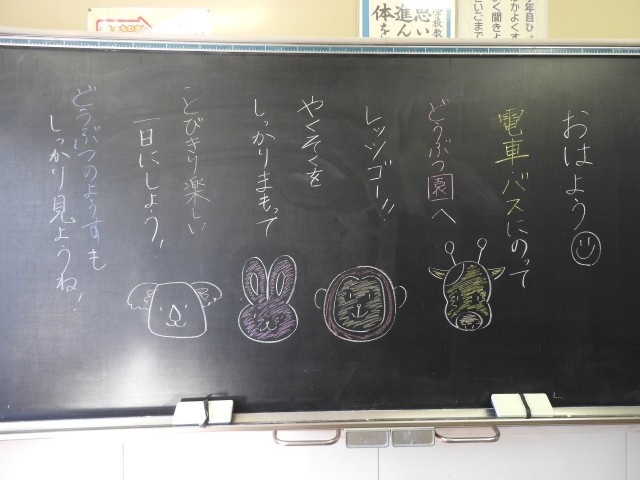 おはよう
電車バスにのって
どうぶつ園へ
レッツゴー!!
やくそくを
しっかりまもって
とびきり楽しい
一日にしよう!
どうぶつのようすも
しっかり見ようね!